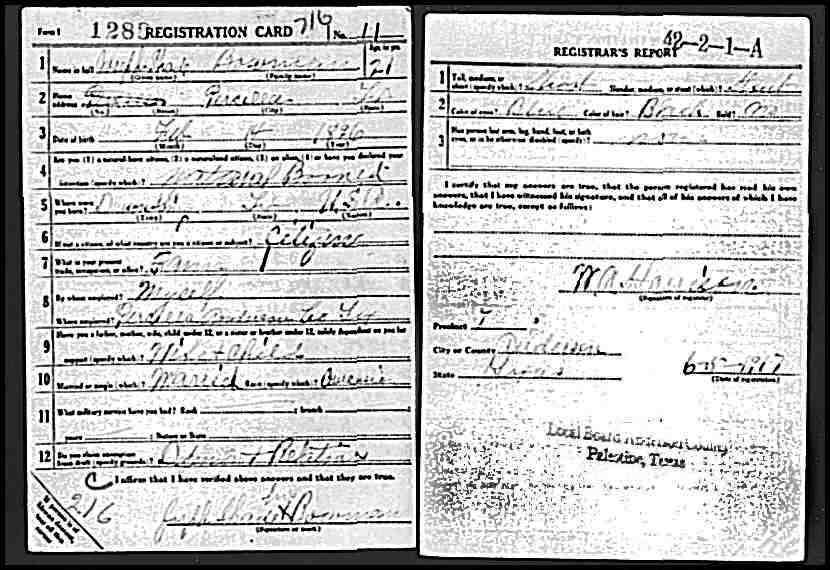 Form 1 1285 REGISTRATION CARD 716 No. 11
Age, in yrs.
1 Name in full Bowman 21
(Given name) (Family name)
2 Home address Percilla Tex
(No.) (Street) (City) (State)
3 Date of birth Feb 14 1896
(Month) (Day) (Year)
Are you (1) a natural born citizen, (2) a naturalized citizen, (3) an alien, (4) or have you declared your
4 intention (specify which)? Natural Booned
5 Where were you born? U.S.A.
(Town) (State) (Nation)
6 If not a citizen, of what country are you a citizen or subject? Citizen
7 What is your present trade, occupation, or office? Farming
8 By whom employed? Myself
Where employed? Percilla Anderson Co Tex
Have you a father, mother, wife, child under 12, or a sister or brother under 12, solely dependent on you for
9 support (specify which)? Wife + Child
10 Married or single (which)? Maried Race (specify which)?
11 What military service have you had? Rank ; branch ;
years ; Nation or State
12 Do you claim exemption from draft (specify grounds)?
I affirm that I have verified above answers and that they are true.
216
Bowman
(Signature or mark)
42-2-1-A
REGISTRAR'S REPORT
1 Tall, medium, or short (specify which)? Short Slender, medium, or stout (which)? Stout
2 Color of eyes? Blue Color of hair? Black Bald? No
3 Has person lost arm, leg, hand, foot, or both eyes, or is he otherwise disabled (specify)?
I certify that my answers are true, that the person registered has read his own
answers, that I have witnessed his signature, and that all of his answers of which I have
knowledge are true, except as follows:
W A Harrison
(Signature of registrar)
Precinct 7
City or County Anderson
State 6-5-1917
(Date of registration)
Local Board Anderson County
Palestine, Texas